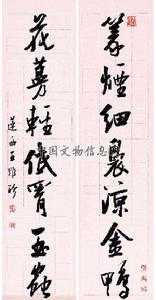 篆煙細裊涼金鴨
花萼輕低罥玉
蓮西王維珍
国文物信息